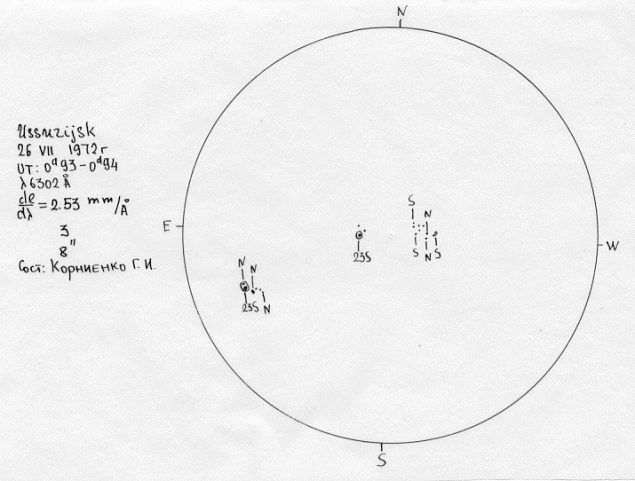 N
Ussurijsk
26 VII 1972 г
UT: 0ᵈ93-0ᵈ94
λ6302 Å
dl/dλ = 2.53 mm/Å
3
8"
Сост: Корниенко Г.И.
E
W
S
N
S S
23S
N S
N N
23S
N
S